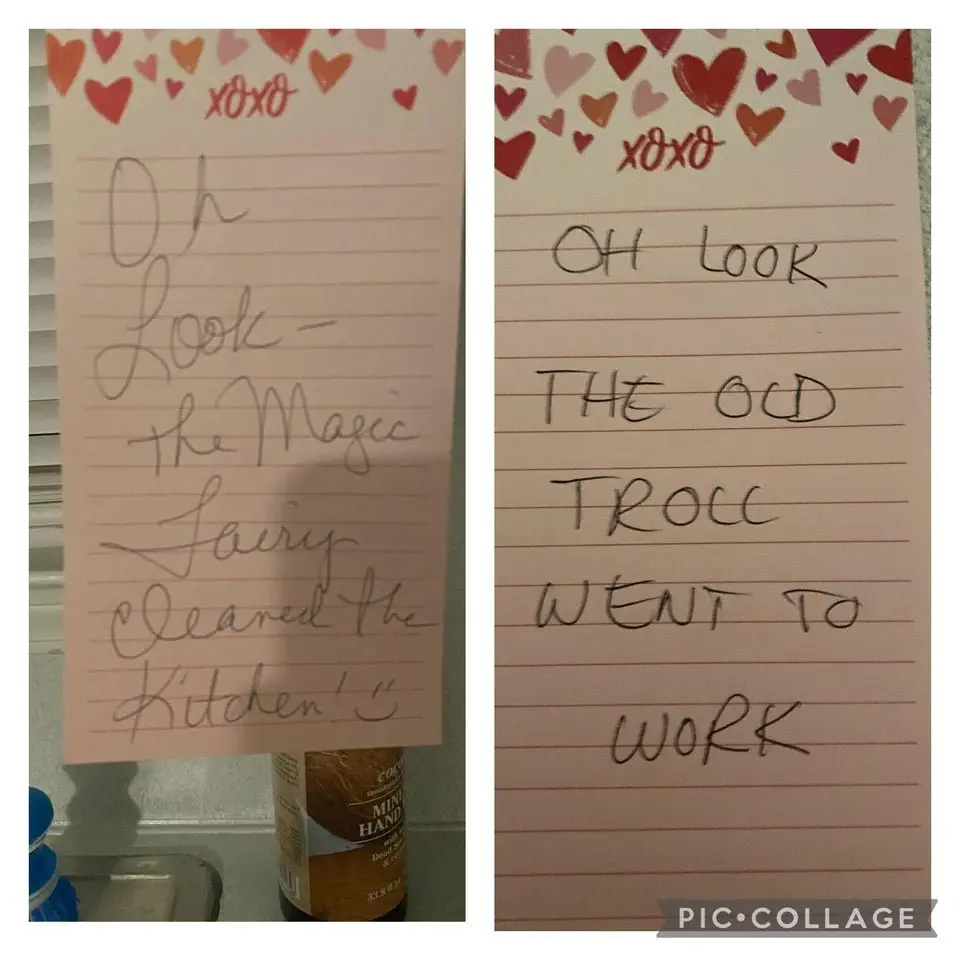 xoxo
Oh
Look -
the Magic
Fairy
cleaned the
Kitchen! :)
COCO
MIN
HAND
Dead S
33.8 fl
xoxo
OH LOOK
THE OLD
TROLL
WENT TO
WORK
PIC•COLLAGE